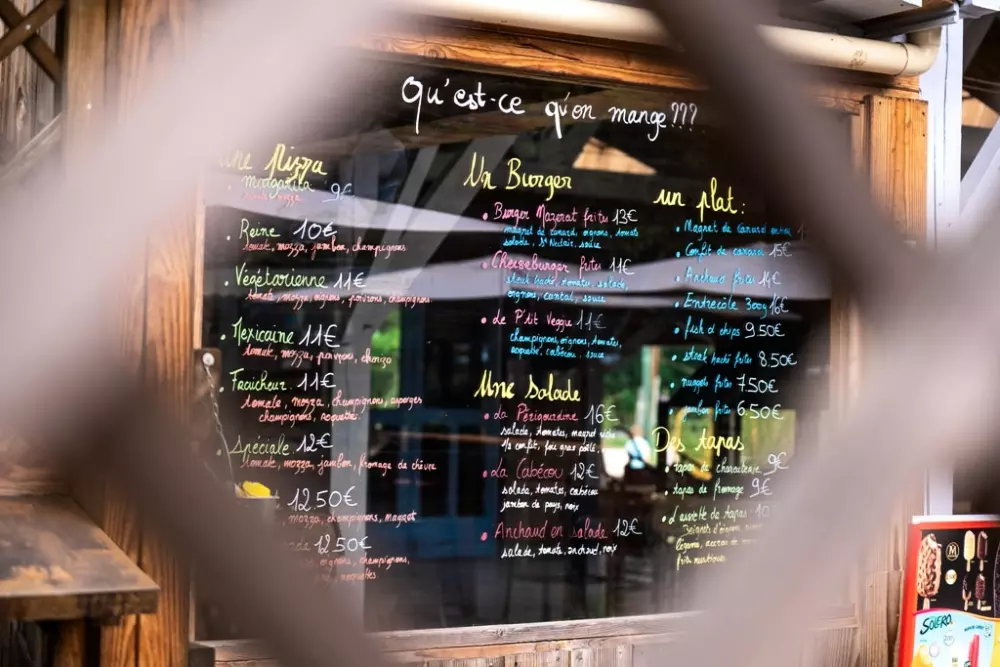 Qu'est-ce qu'on mange???
une Pizza
• Margarita 9€
mozza
• Reine 10€
tomate, mozza, jambon, champignons
• Végétarienne 11€
tomate, mozza, oignons, poivrons, champignons
• Mexicaine 11€
tomate, mozza, poivrons, chorizo
• Fraicheur 11€
tomate, mozza, champignons, asperges
champignons, roquette
• Spéciale 12€
tomate, mozza, jambon, fromage de chèvre
12.50€
mozza, champignons, magret
12.50€
oignons, champignons,
Un Burger
• Burger Mazerat frites 13€
magret de canard, oignons, tomate
salade, St Nectaire, sauce
• Cheeseburger frites 11€
steak haché, tomates, salade,
oignons, cantal, sauce
• Le P'tit Veggie 11€
champignons, oignons, tomates,
roquette, cabécou, sauce
Une Salade
• La Périgourdine 16€
salade, tomates, magret séché
1/2 confit, foie gras poêlé
• La Cabécou 12€
salade, tomates, cabécou
jambon de pays, noix
• Anchaud en salade 12€
salade, tomate, anchaud, noix
un plat:
• Magret de Canard entier 1
• Confit de canard 15€
• Anchaud frites 14€
• Entrecôte 300g 16€
• fish & chips 9.50€
• steak haché frites 8.50€
• nuggets frites 7.50€
• jambon frites 6.50€
Des tapas
• tapas de charcuterie 9€
• tapas de fromage 9€
• assiette de tapas 10
Beignets d'oignons
SOLERO